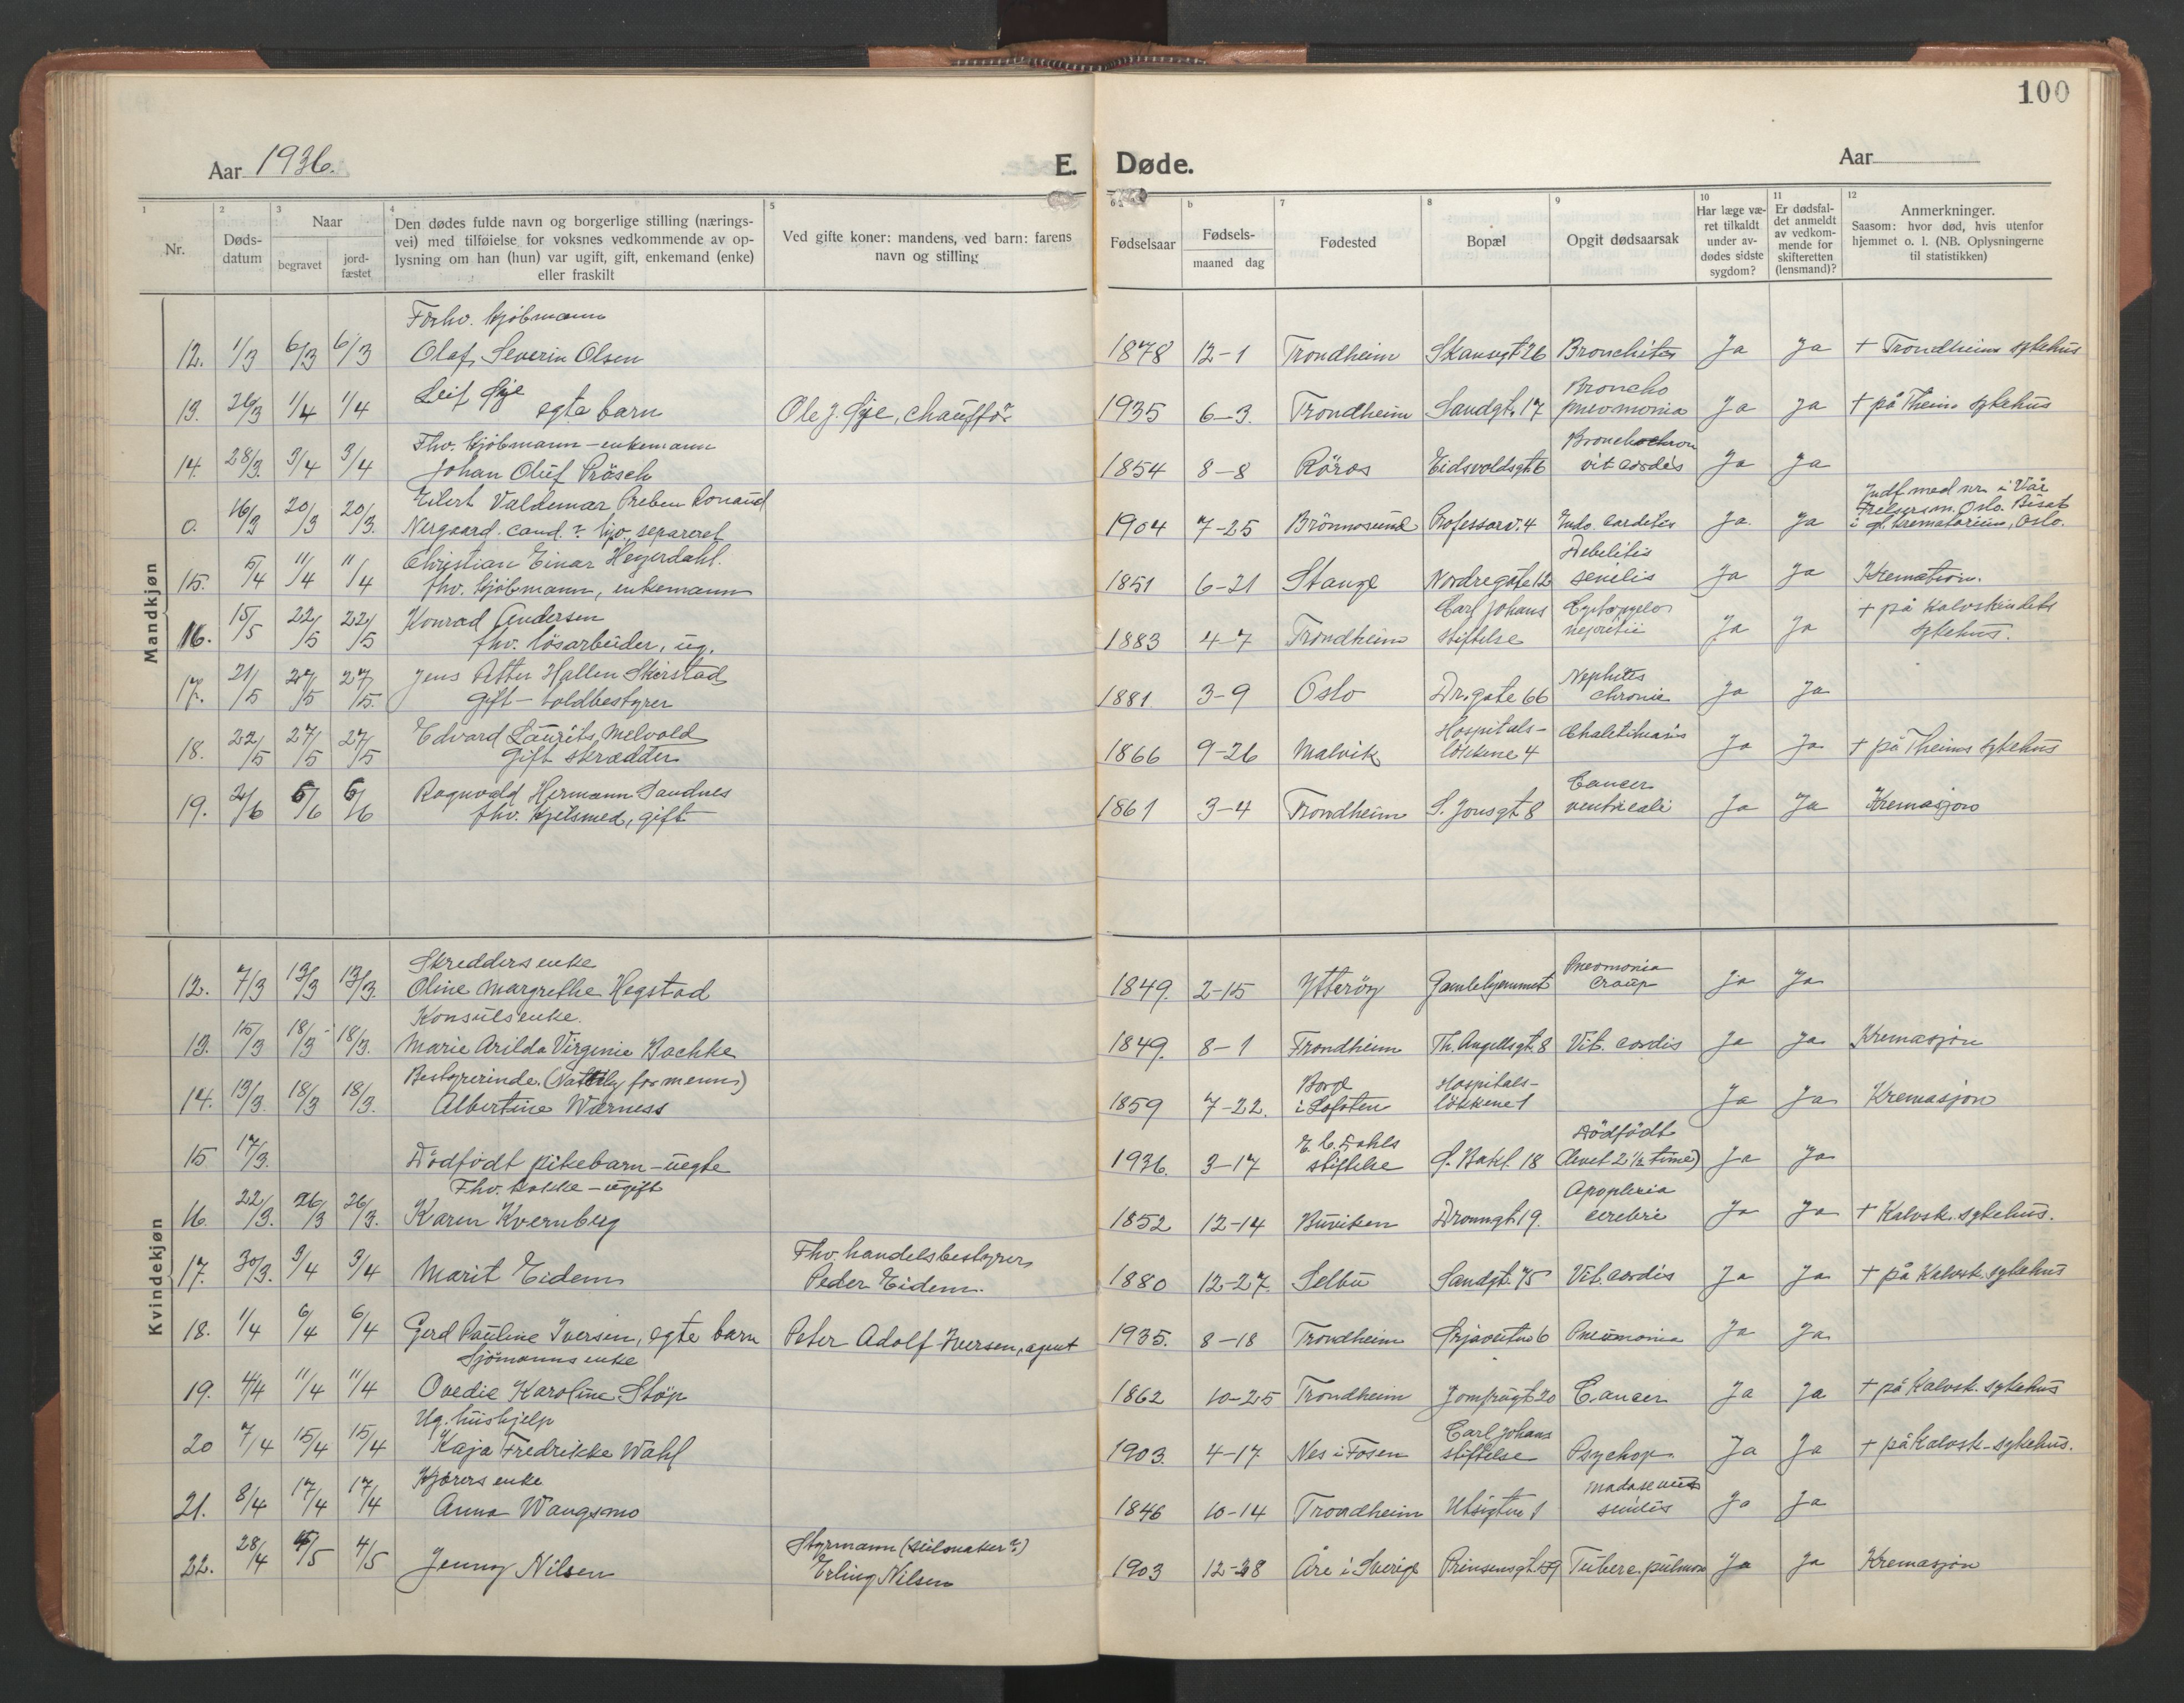 100
Aar 1936.
E. Døde.
Aar
1 2 3 4 5 6 a b 7 8 9 10 11 12
Nr.
Døds-
datum
Naar
begravet
jord-
fæstet
Den dødes fulde navn og borgerlige stilling (nærings-
vei) med tilføielse for voksnes vedkommende av op-
lysning om han (hun) var ugift, gift, enkemand (enke)
eller fraskilt
Ved gifte koner: mandens, ved barn: farens
navn og stilling
Fødselsaar
Fødsels-
maaned dag
Fødested
Bopæl
Opgit dødsaarsak
Har læge væ-
ret tilkaldt
under av-
dødes sidste
sygdom?
Er dødsfal-
det anmeldt
av vedkom-
mende for
skifteretten
(lensmand)?
Anmerkninger.
Saasom: hvor død, hvis utenfor
hjemmet o. l. (NB. Oplysningerne
til statistikken)
Mandkjøn
Forhv. kjöbmann
12. 1/3 6/3 6/3 Olaf Severin Olsen 1878 12-1 Trondheim Skansegt 26 Bronchites Ja Ja + Trondheims sykehus
Broncho
13. 26/3 1/4 1/4 Leif Øye egte barn Ole J. Øye, chauffør 1935 6-3. Trondheim Sandgt. 17 pneomonia Ja Ja + på Theims sykehus
Fhv. kjöbmann - enkemann
14. 28/3. 3/4 3/4 Johan Oluf Prösch 1854 8-8 Röros Eidsvoldsgt. 6 vit cordis Ja Ja
Eilert Valdemar Preben
0. 16/3 20/3 20/3. Nergaard. cand. separeret 1904 7-25 Brönnosund Professorv. 4 Endo. Carditis Ja Ja
Indf med nr. i Vår
Frelsersm. Oslo. Bisat
i gl. krematorium, Oslo.
Christian Einar Heyerdahl.
15. 5/4 11/4 11/4 fhv. kjöbmann, enkemann 1851 6-21 Stange Nordregate 12 Debelites
senilis Ja Ja Kremation.
Konrad Andersen
16. 15/5 22/5 22/5 fhv. lösarbeider, ug. 1883 4-7 Trondheim Carl Johans
stiftelse Ja Ja + på Kalvskindets
sykehus.
Jens Petter Hallen Skirstad
17. 21/5 27/5 27/5. gift - toldbestyrer 1881 3-9 Oslo Dr. gate 66 Nephites
chronic Ja Ja
Edvard Laurits Melvold
18. 22/5 27/5 27/5 Gift skrædder 1866 9-26 Malvik Hospitals-
lökkene 4 Ja Ja + på Theims sykehus
Ragnvald Hermann Sandnes
19. 2/6 6/6 6/6 fhv. kjelsmed, gift 1861 3-4 Trondheim S. Jonsgt 8 Cancer
ventricali Ja Ja Kremasjon
Kvindekjøn
Skredders enke
12. 7/3 13/3 13/3. Oline Margrethe Hegstad 1849. 2-15 Ytteröy Gamlehjemmet Pneomonia
Croup Ja Ja
Konsuls enke.
13. 15/3 18/3 18/3. Marie Arilda Virginie Bachke 1849. 8-1 Trondheim Th. Angellsgt. 8 Vit. cordis Ja Ja Kremasjon
Bestyrerinde. (Natthly for menn)
14. 13/3. 18/3 18/3. Albertine Wærness 1859 7-22. Borge
i Lofoten Hospitals-
lökkene 1 Ja Ja Kremasjon
15 17/3. Dödfödt pikebarn - uegte 1936. 3-17 E. C. Dahls
stiftelse S. Bakl. 18 Dödfödt
(levet 2 1/2 time) Ja Ja
Fhv. kokke - ugift
16. 22/3. 26/3 26/3. Karen Kvernberg 1852 12-14 Buviken Dronngt. 19. Apoplexia
cerebri Ja Ja + Kalvsk. sykehus.
Fhv. handelsbestyrer
17. 30/3. 3/4 3/4 Marit Eidem Peder Eidem. 1880 12-27. Selbu Sandgt. 75 Vit. cordis Ja Ja + på Kalvsk. sykehus
18. 1/4 6/4 6/4 Gerd Pauline Iversen, egte barn Peter Adolf Iversen, agent 1935. 8-18 Trondheim Pneumonia Ja Ja
Sjömanns enke
19. 4/4 11/4 11/4 Ovedie Karoline Stöp 1862 10-25 Trondheim Jomfrugt 20 Cancer Ja Ja + på Kalvsk. sykehus
Ug. hushjelp
20 7/4 15/4 15/4 Kaja Fredrikke Wahl 1903. 4-17 Nes i Fosen Carl Johans
stiftelse Psychop. Ja Ja + på Kalvsk. sykehus.
Kjørers enke
21. 8/4 17/4 17/4 Anna Wangsmo 1846 10-14 Trondheim Utsigten 1 senilis Ja Ja
Styrmann (seilmaker?)
22. 28/4 4/5 4/5 Jenny Nilsen Erling Nilsen 1903 12-28 Åre i Sverige Prinsensgt. 59 Tuberc. pulmon Ja Ja Kremasjon